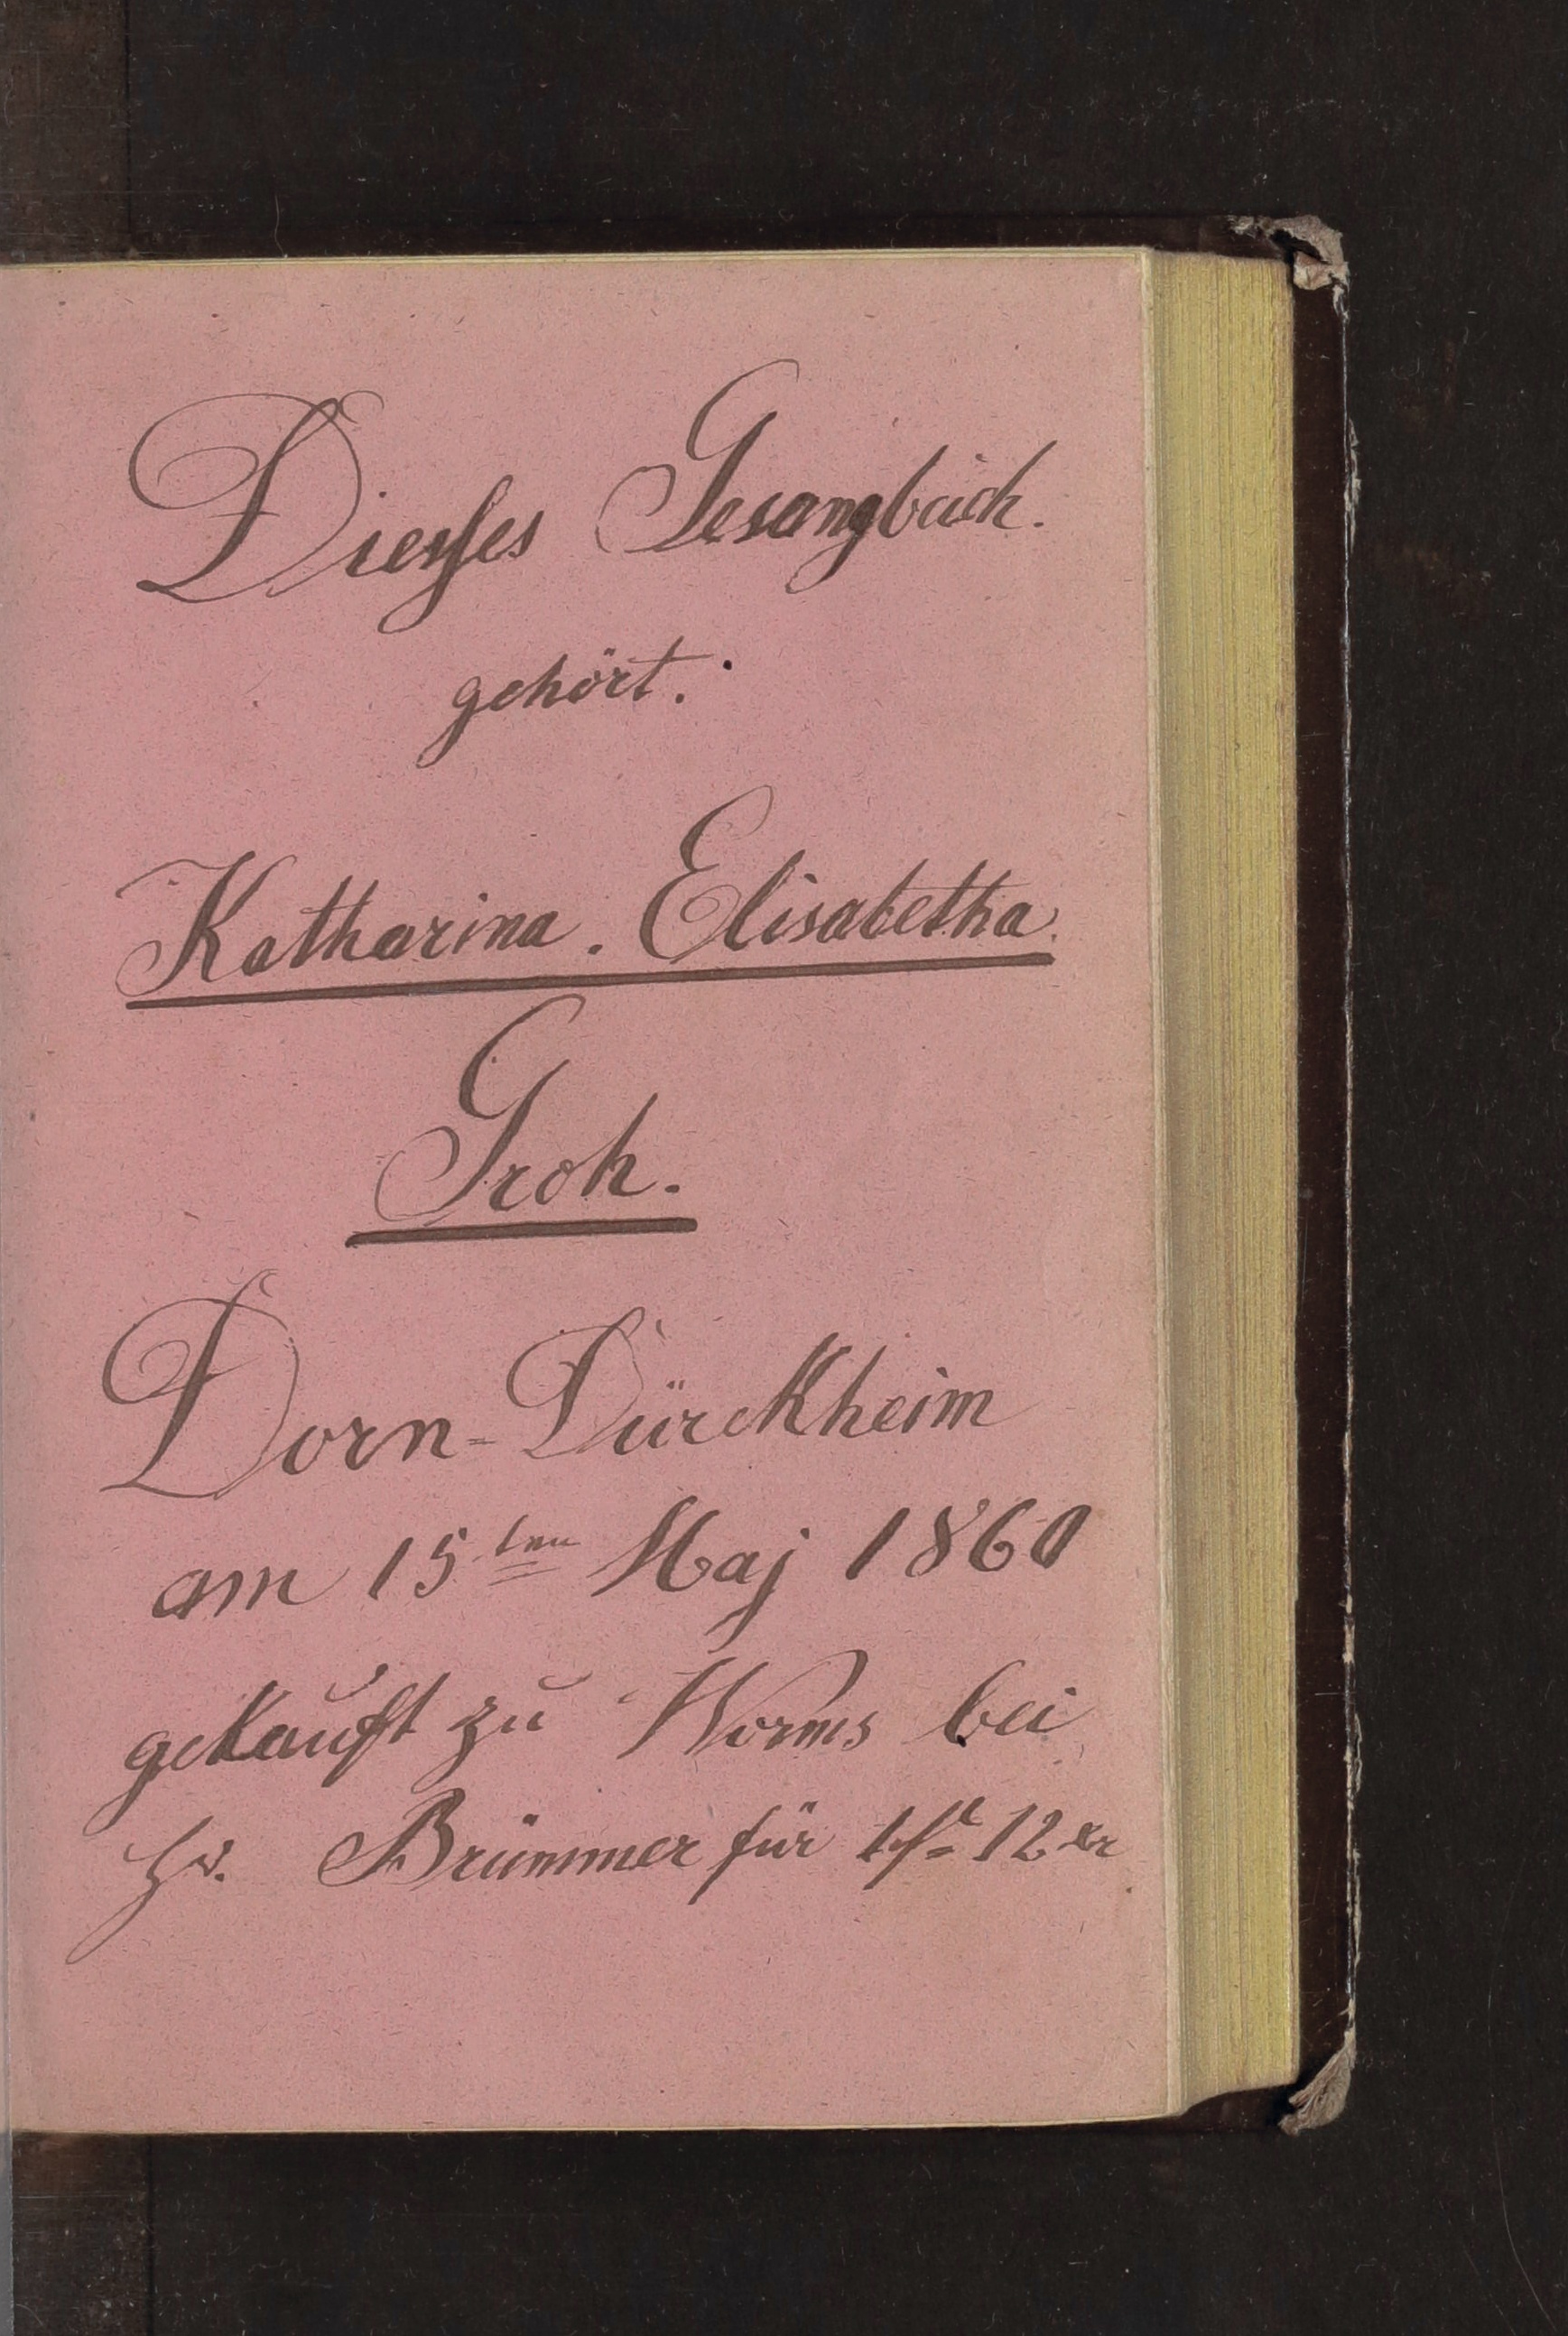 Diesses Gesangbuch.
gehört.
Katharina. Elisabetha.
Groh.
Dorn-Dürckheim
am 15ten Maj 1860
gekauft zu Worms bei
Hr. Brummer für 1 fl 12 xr